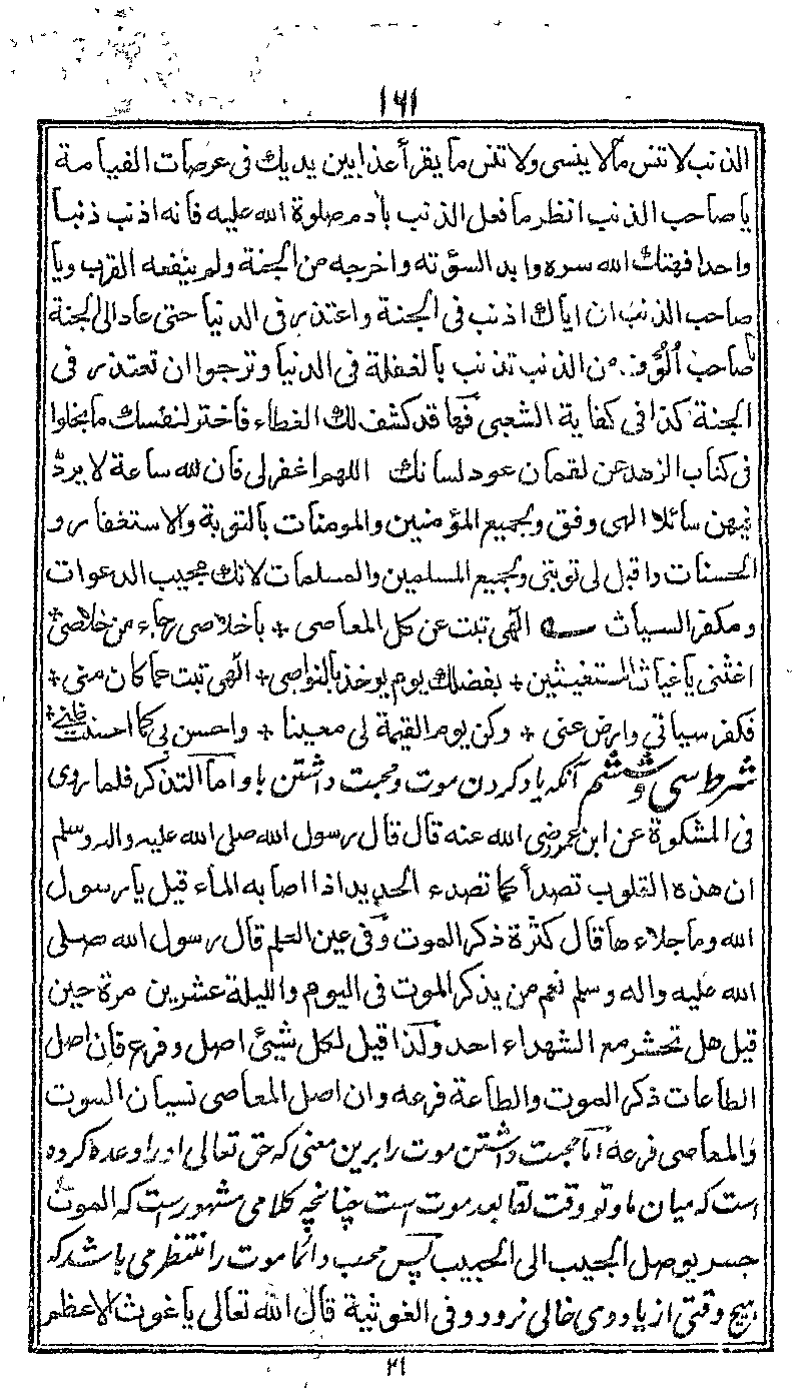 ١٦١
الذنب لا تنس ما لا ينسى ولا تنس ما يقرأ غدا بين يديك فى عرصات القيامة
يا صاحب الذنب انظر ما فعل الذنب بادم صلوة الله عليه فانه اذنب ذنبا
واحدا فهتك الله سره وابد السؤته واخرجه من الجنة ولم ينفعه القرب ويا
صاحب الذنب ان اباك اذنب فى الجنة واعتذر فى الدنيا حتى عاد الى الجنة
يا صاحب من الذنب تذنب بالغفلة فى الدنيا وترجوا ان تعتذر فى
الجنة كذا فى كفاية الشعبى فها قد كشف لك الغطاء فاختر لنفسك ما يحلوا
فى كتاب الزهد عن لقمان عود لسانك اللهم اغفر لى فان لله ساعة لا يردّ
فيهن سائلا الهى وفق ولجميع المؤمنين والمومنات بالتوبة والاستغفار و
الحسنات واقبل لى توبتى ولجميع المسلمين والمسلمات لانك مجيب الدعوات
ومكفر السيأت الهى تبت عن كل المعاصى + باخلاصى رجاء من خلاصى +
اغثنى يا غياث المستغيثين + بفضلك يوم يوخذ بالنواصى + الهى تبت عما كان منى +
فكفر سياتي وارض عنى + وكن يوم القيمة لى معينا + واحسن بى كما احسنت
شرط سى وششم آنكه ياد كردن موت ومحبت داشتن باو اما التذكر فلما روى
فى المشكوة عن ابن عمر رضى الله عنه قال قال رسول الله صلى الله عليه واله وسلم
ان هذه القلوب تصدأ كما تصدء الحديد اذا اصابه الماء قيل يا رسول
الله وما جلاءها قال كثرة ذكر الموت وفى عين العلم قال رسول الله صلى
الله عليه واله وسلم نعم من يذكر الموت فى اليوم والليلة عشرين مرة حين
قيل هل تحشر مع الشهداء احد ولذا قيل لكل شيئ اصل وفرع فان اصل
الطاعات ذكر الموت والطاعة فرعه وان اصل المعاصى نسيان الموت
والمعاصى فرعه اما محبت داشتن موت را برين معنى كه حق تعالى اورا وعده كروه
است كه ميان ما وتو وقت لقا بعد موت است چنانچه كلامى مشهور است كه الموت
جسر يوصل الحبيب الى الحبيب پس محب دائما موت را منتظر مى باشد كه
هيچ وقتى از ياد وى خالى نرود وفى الغوثية قال الله تعالى يا غوث الاعظم
٢١